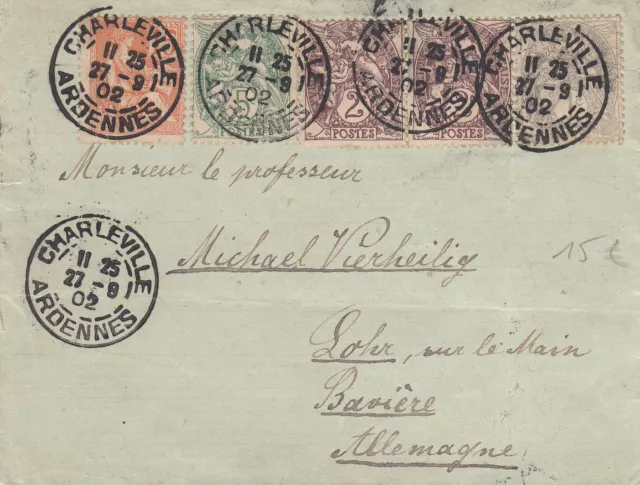 CHARLEVILLE
11 25
27 - 9
02
ARDENNES
CHARLEVILLE
11 25
27 - 9
02
ARDENNES
5
POSTES
2
POSTES
CHARLEVILLE
11 25
27 - 9
02
ARDENNES
2
POSTES
CHARLEVILLE
11 25
27 - 9
02
ARDENNES
Monsieur le professeur
Michael Vierheilig
15€
CHARLEVILLE
11 25
27 - 9
02
ARDENNES
Lohr, sur le Main
Bavière
Allemagne